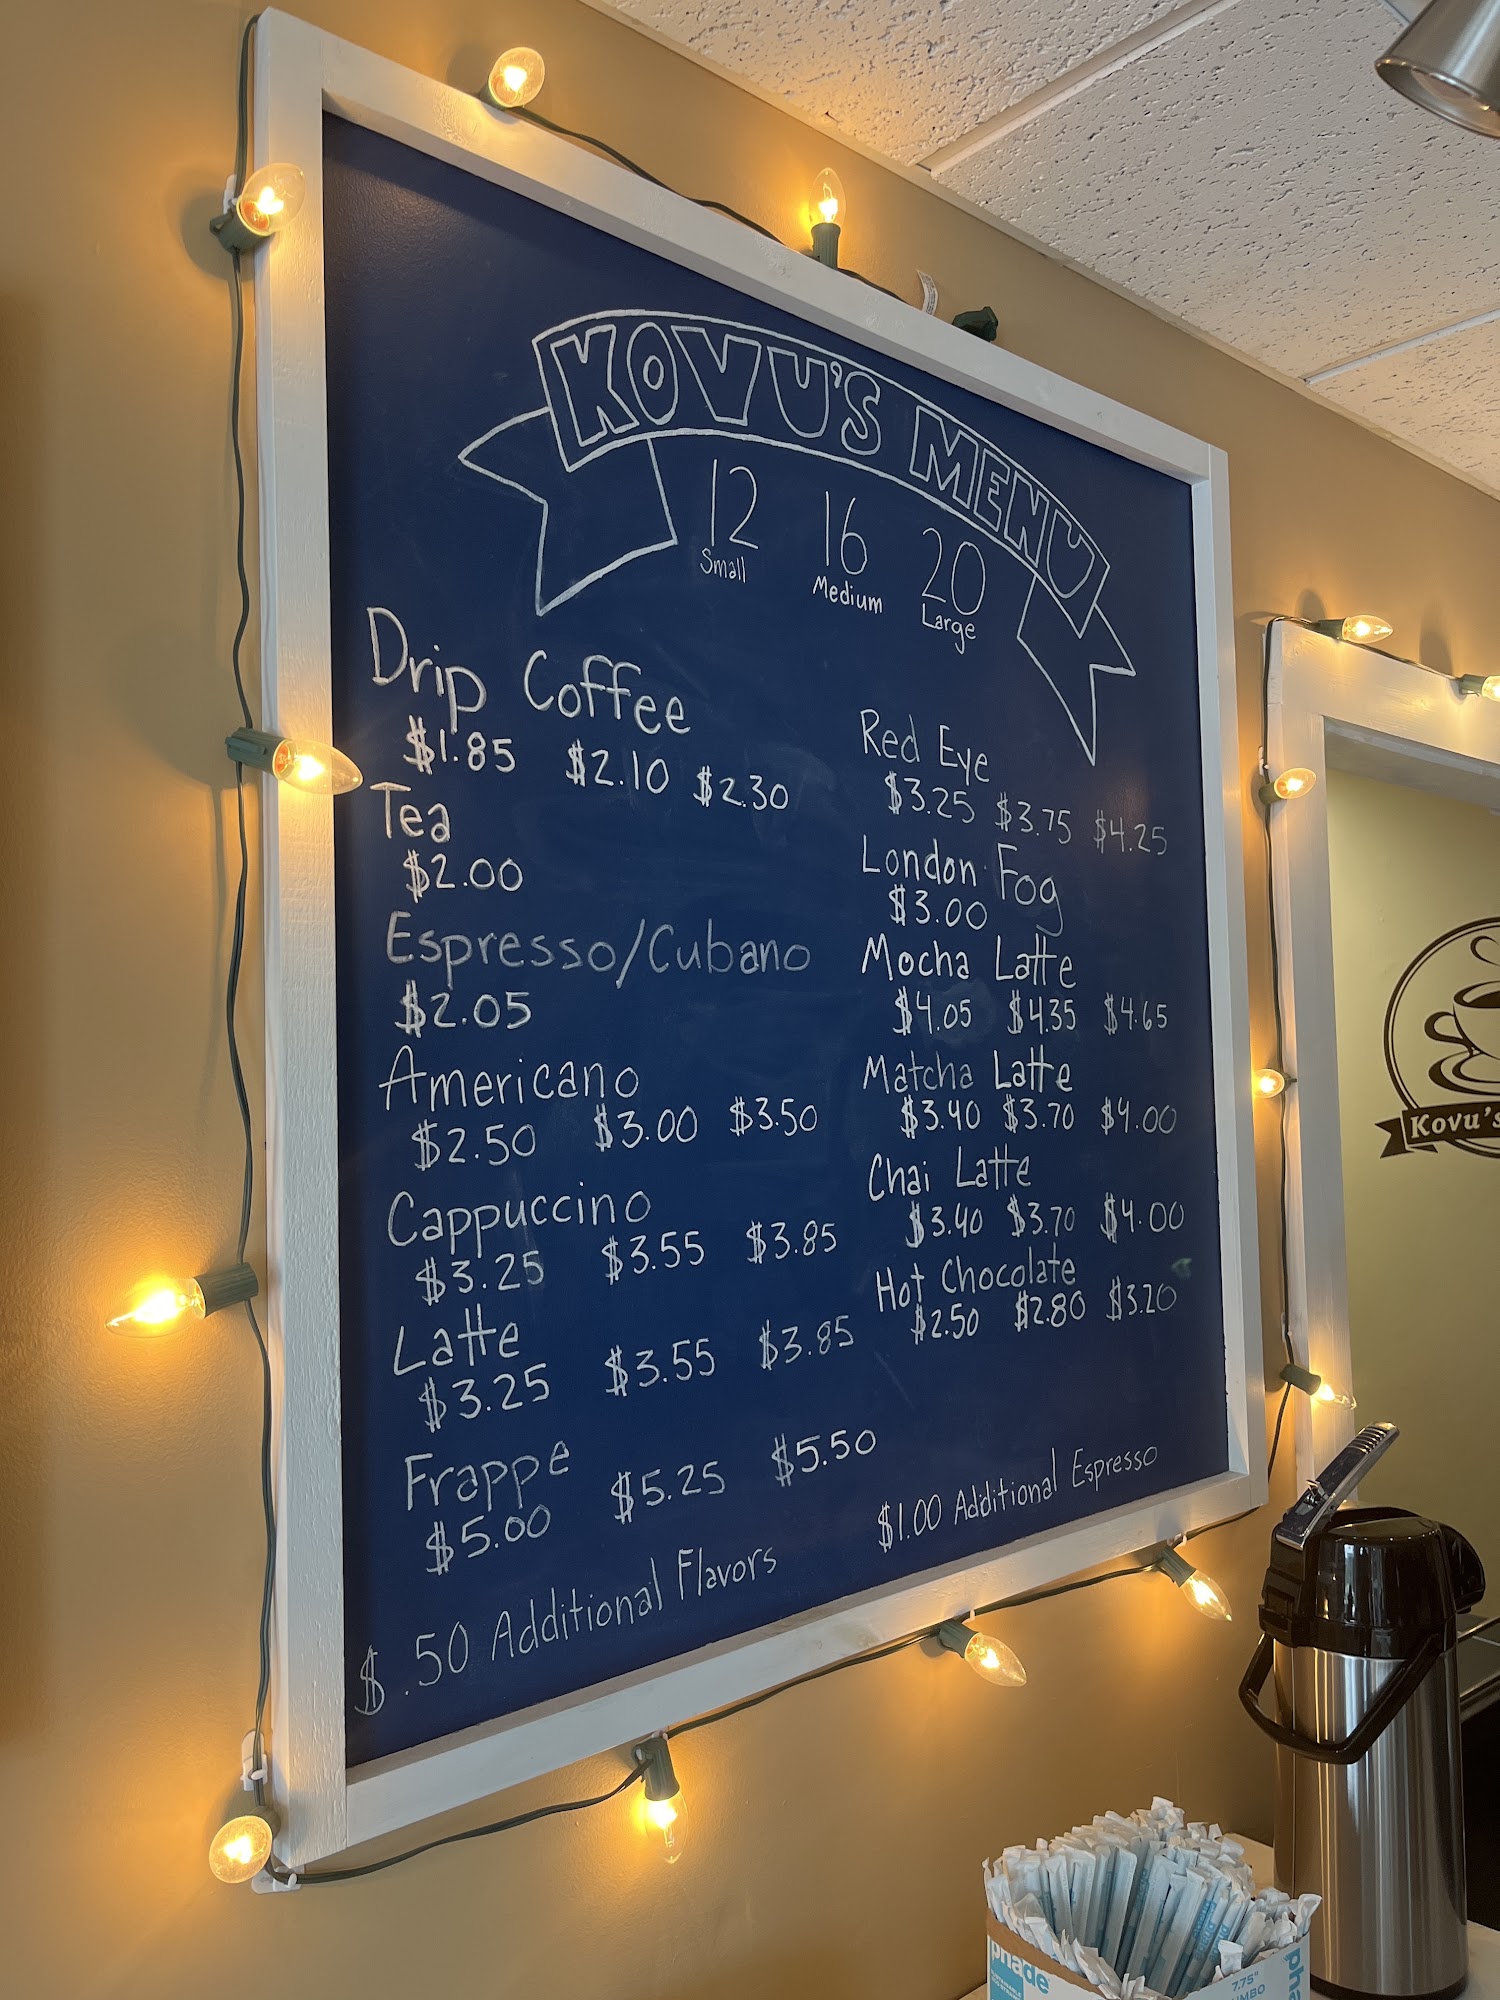 KOVU'S MENU
12 16 20
Small Medium Large
Drip Coffee
$1.85 $2.10 $2.30
Tea
$2.00
Espresso/Cubano
$2.05
Americano
$2.50 $3.00 $3.50
Cappuccino
$3.25 $3.55 $3.85
Latte
$3.25 $3.55 $3.85
Frappe
$5.00 $5.25 $5.50
$.50 Additional Flavors
Red Eye
$3.25 $3.75 $4.25
London Fog
$3.00
Mocha Latte
$4.05 $4.35 $4.65
Matcha Latte
$3.40 $3.70 $4.00
Chai Latte
$3.40 $3.70 $4.00
Hot Chocolate
$2.50 $2.80 $3.20
$1.00 Additional Espresso
Kovu's
phade
7.75"
phade